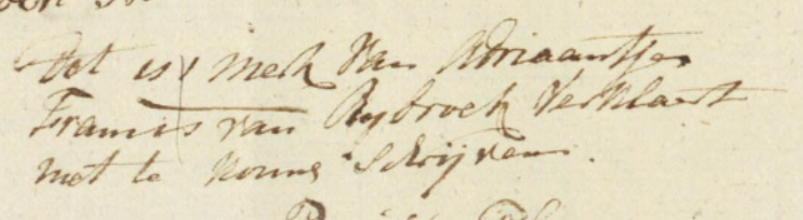 Dit is merk van Adriaantje
Francis van Rijbroek Verklaart
niet te konne Schrijven.